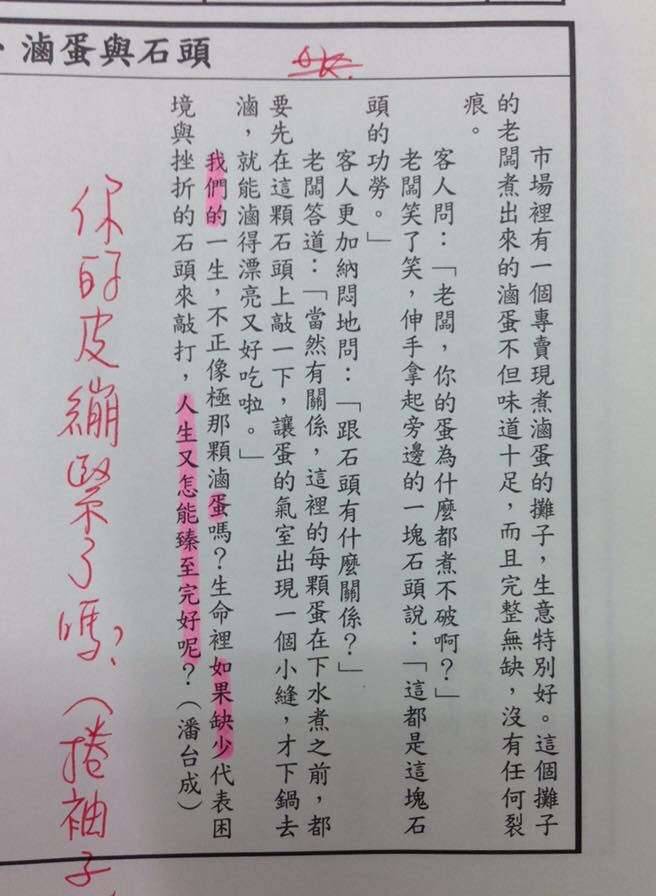 、滷蛋與石頭
市場裡有一個專賣現煮滷蛋的攤子，生意特別好。這個攤子
的老闆煮出來的滷蛋不但味道十足，而且完整無缺，沒有任何裂
痕。
客人問：「老闆，你的蛋為什麼都煮不破啊？」
老闆笑了笑，伸手拿起旁邊的一塊石頭說：「這都是這塊石
頭的功勞。」
客人更加納悶地問：「跟石頭有什麼關係？」
老闆答道：「當然有關係，這裡的每顆蛋在下水煮之前，都
要先在這顆石頭上敲一下，讓蛋的氣室出現一個小縫，才下鍋去
滷，就能滷得漂亮又好吃啦。」
我們的一生，不正像極那顆滷蛋嗎？生命裡如果缺少代表困
境與挫折的石頭來敲打，人生又怎能臻至完好呢？（潘台成）
你的皮繃緊了嗎？（捲袖子